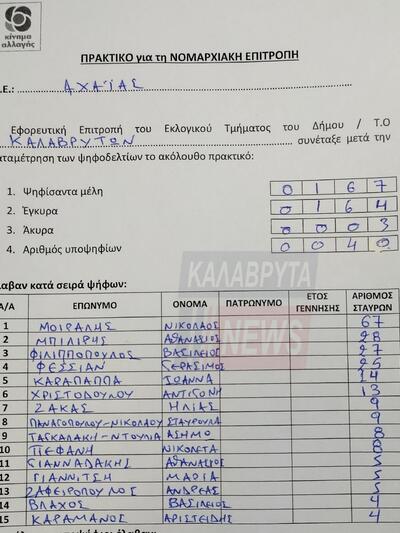 κίνημα
αλλαγής
ΠΡΑΚΤΙΚΟ για τη ΝΟΜΑΡΧΙΑΚΗ ΕΠΙΤΡΟΠΗ
.Ε.: ΑΧΑΪΑΣ
Εφορευτική Επιτροπή του Εκλογικού Τμήματος του Δήμου / Τ.Ο
ΚΑΛΑΒΡΥΤΩΝ συνέταξε μετά την
καταμέτρηση των ψηφοδελτίων το ακόλουθο πρακτικό:
1. Ψηφίσαντα μέλη 0 1 6 7
2. Έγκυρα 0 1 6 4
3. Άκυρα 0 0 0 3
4. Αριθμός υποψηφίων 0 0 4 0
ΚΑΛΑΒΡΥΤΑ
NEWS
λαβαν κατά σειρά ψήφων:
Α/Α ΕΠΩΝΥΜΟ ΟΝΟΜΑ ΠΑΤΡΩΝΥΜΟ ΕΤΟΣ ΓΕΝΝΗΣΗΣ ΑΡΙΘΜΟΣ ΣΤΑΥΡΩΝ
1 ΜΟΙΡΑΛΗΣ ΝΙΚΟΛΑΟΣ 67
2 ΜΠΙΛΙΡΗΣ ΑΘΑΝΑΣΙΟΣ 28
3 ΦΙΛΙΠΠΟΠΟΥΛΟΣ ΒΑΣΙΛΕΙΟΣ 27
4 ΦΕΣΣΙΑΝ ΓΕΡΑΣΙΜΟΣ 25
5 ΚΑΡΑΠΑΠΠΑ ΙΩΑΝΝΑ 14
6 ΧΡΙΣΤΟΠΟΥΛΟΥ ΑΝΤΙΓΟΝΗ 13
7 ΖΑΚΑΣ ΗΛΙΑΣ 9
8 ΠΑΝΑΓΟΠΟΥΛΟΥ-ΝΙΚΟΛΑΟΥ ΣΤΑΥΡΟΥΛΑ 9
9 ΤΑΓΚΑΛΑΚΗ-ΝΤΟΥΛΙΑ ΑΣΗΜΩ 8
10 ΠΕΦΑΝΗ ΝΙΚΟΛΕΤΑ 8
11 ΓΙΑΝΝΑΔΑΚΗΣ ΑΘΑΝΑΣΙΟΣ 5
12 ΓΙΑΝΝΙΤΣΗ ΜΑΡΙΑ 5
13 ΖΑΦΕΙΡΟΠΟΥΛΟΣ ΑΝΔΡΕΑΣ 5
14 ΒΛΑΧΟΣ ΒΑΣΙΛΕΙΟΣ 4
15 ΚΑΡΑΜΑΝΟΣ ΑΡΙΣΤΕΙΔΗΣ 4